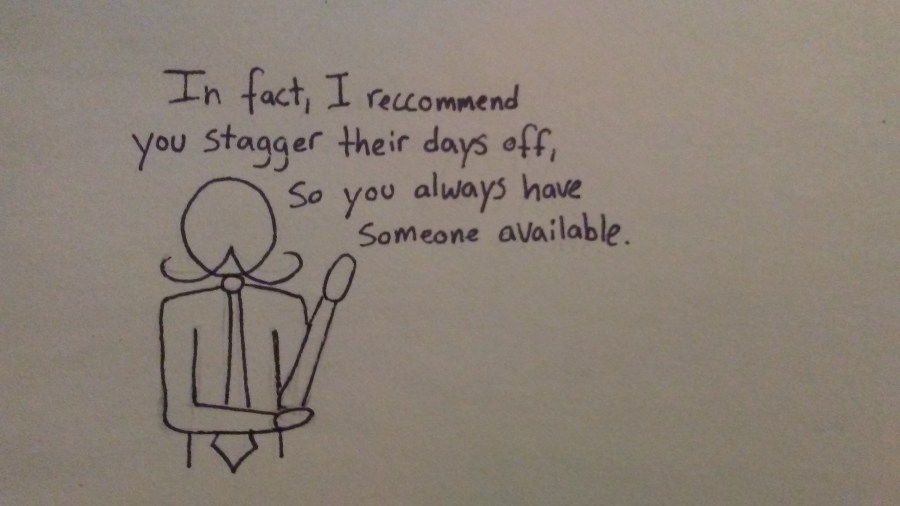 In fact, I reccommend
you stagger their days off,
So you always have
Someone available.